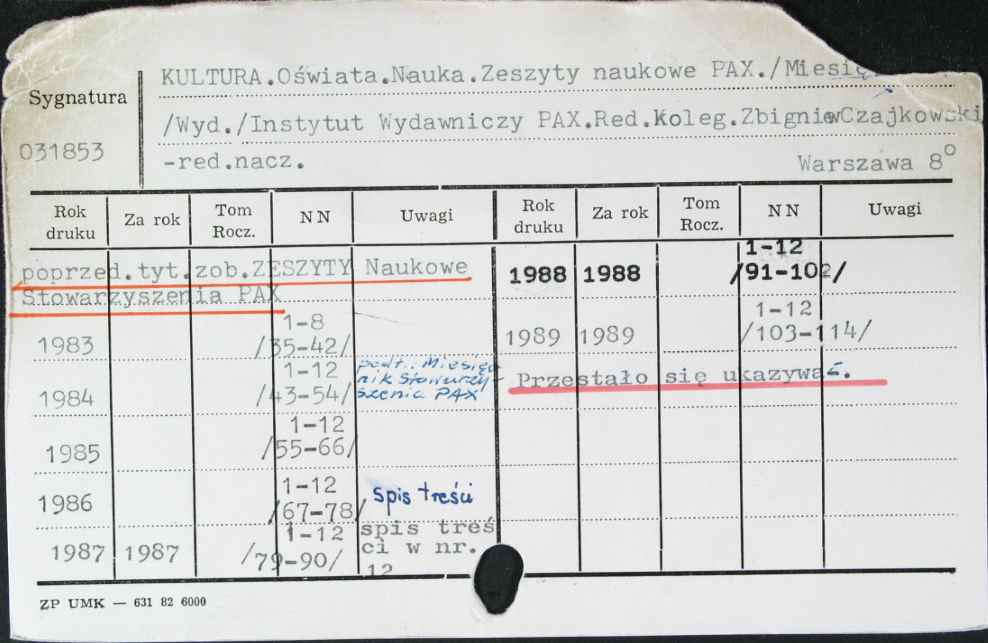 KULTURA.Oświata.Nauka.Zeszyty naukowe PAX./Miesię
Sygnatura
/Wyd./Instytut Wydawniczy PAX.Red.Koleg.ZbigniewCzajkowski
031853
-red.nacz. Warszawa 8°
Rok druku Za rok Tom Rocz. NN Uwagi Rok druku Za rok Tom Rocz. NN Uwagi
poprzed.tyt.zob.ZESZYTY Naukowe
Stowarzyszenia PAX
1988 1988 1-12 /91-102/
1983 1-8 /35-42/
1989 1989 1-12 /103-114/
1984 1-12 /43-54/ podt.: Miesięcz
nik Stowarzy-
szenia PAX
Przestało się ukazywać.
1985 1-12 /55-66/
1986 1-12 /67-78/ spis treści
1987 1987 1-12 /79-90/ spis treś
ci w nr.
12
ZP UMK — 631 82 6000